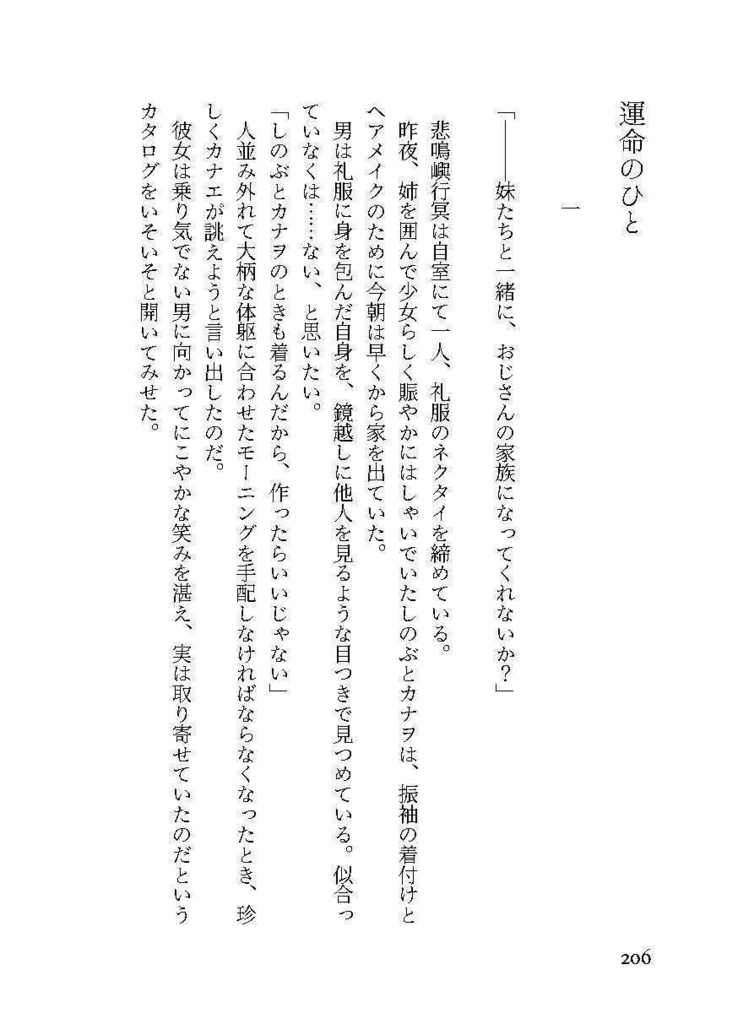 運命のひと
一
「――妹たちと一緒に、おじさんの家族になってくれないか？」
悲鳴嶼行冥は自室にて一人、礼服のネクタイを締めている。
昨夜、姉を囲んで少女らしく賑やかにはしゃいでいたしのぶとカナヲは、振袖の着付けと
ヘアメイクのために今朝は早くから家を出ていた。
男は礼服に身を包んだ自身を、鏡越しに他人を見るような目つきで見つめている。似合っ
ていなくは……ない、と思いたい。
「しのぶとカナヲのときも着るんだから、作ったらいいじゃない」
人並み外れて大柄な体躯に合わせたモーニングを手配しなければならなくなったとき、珍
しくカナエが誂えようと言い出したのだ。
彼女は乗り気でない男に向かってにこやかな笑みを湛え、実は取り寄せていたのだという
カタログをいそいそと開いてみせた。
206